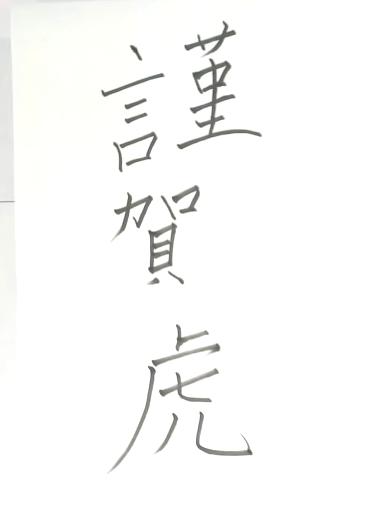 謹賀虎